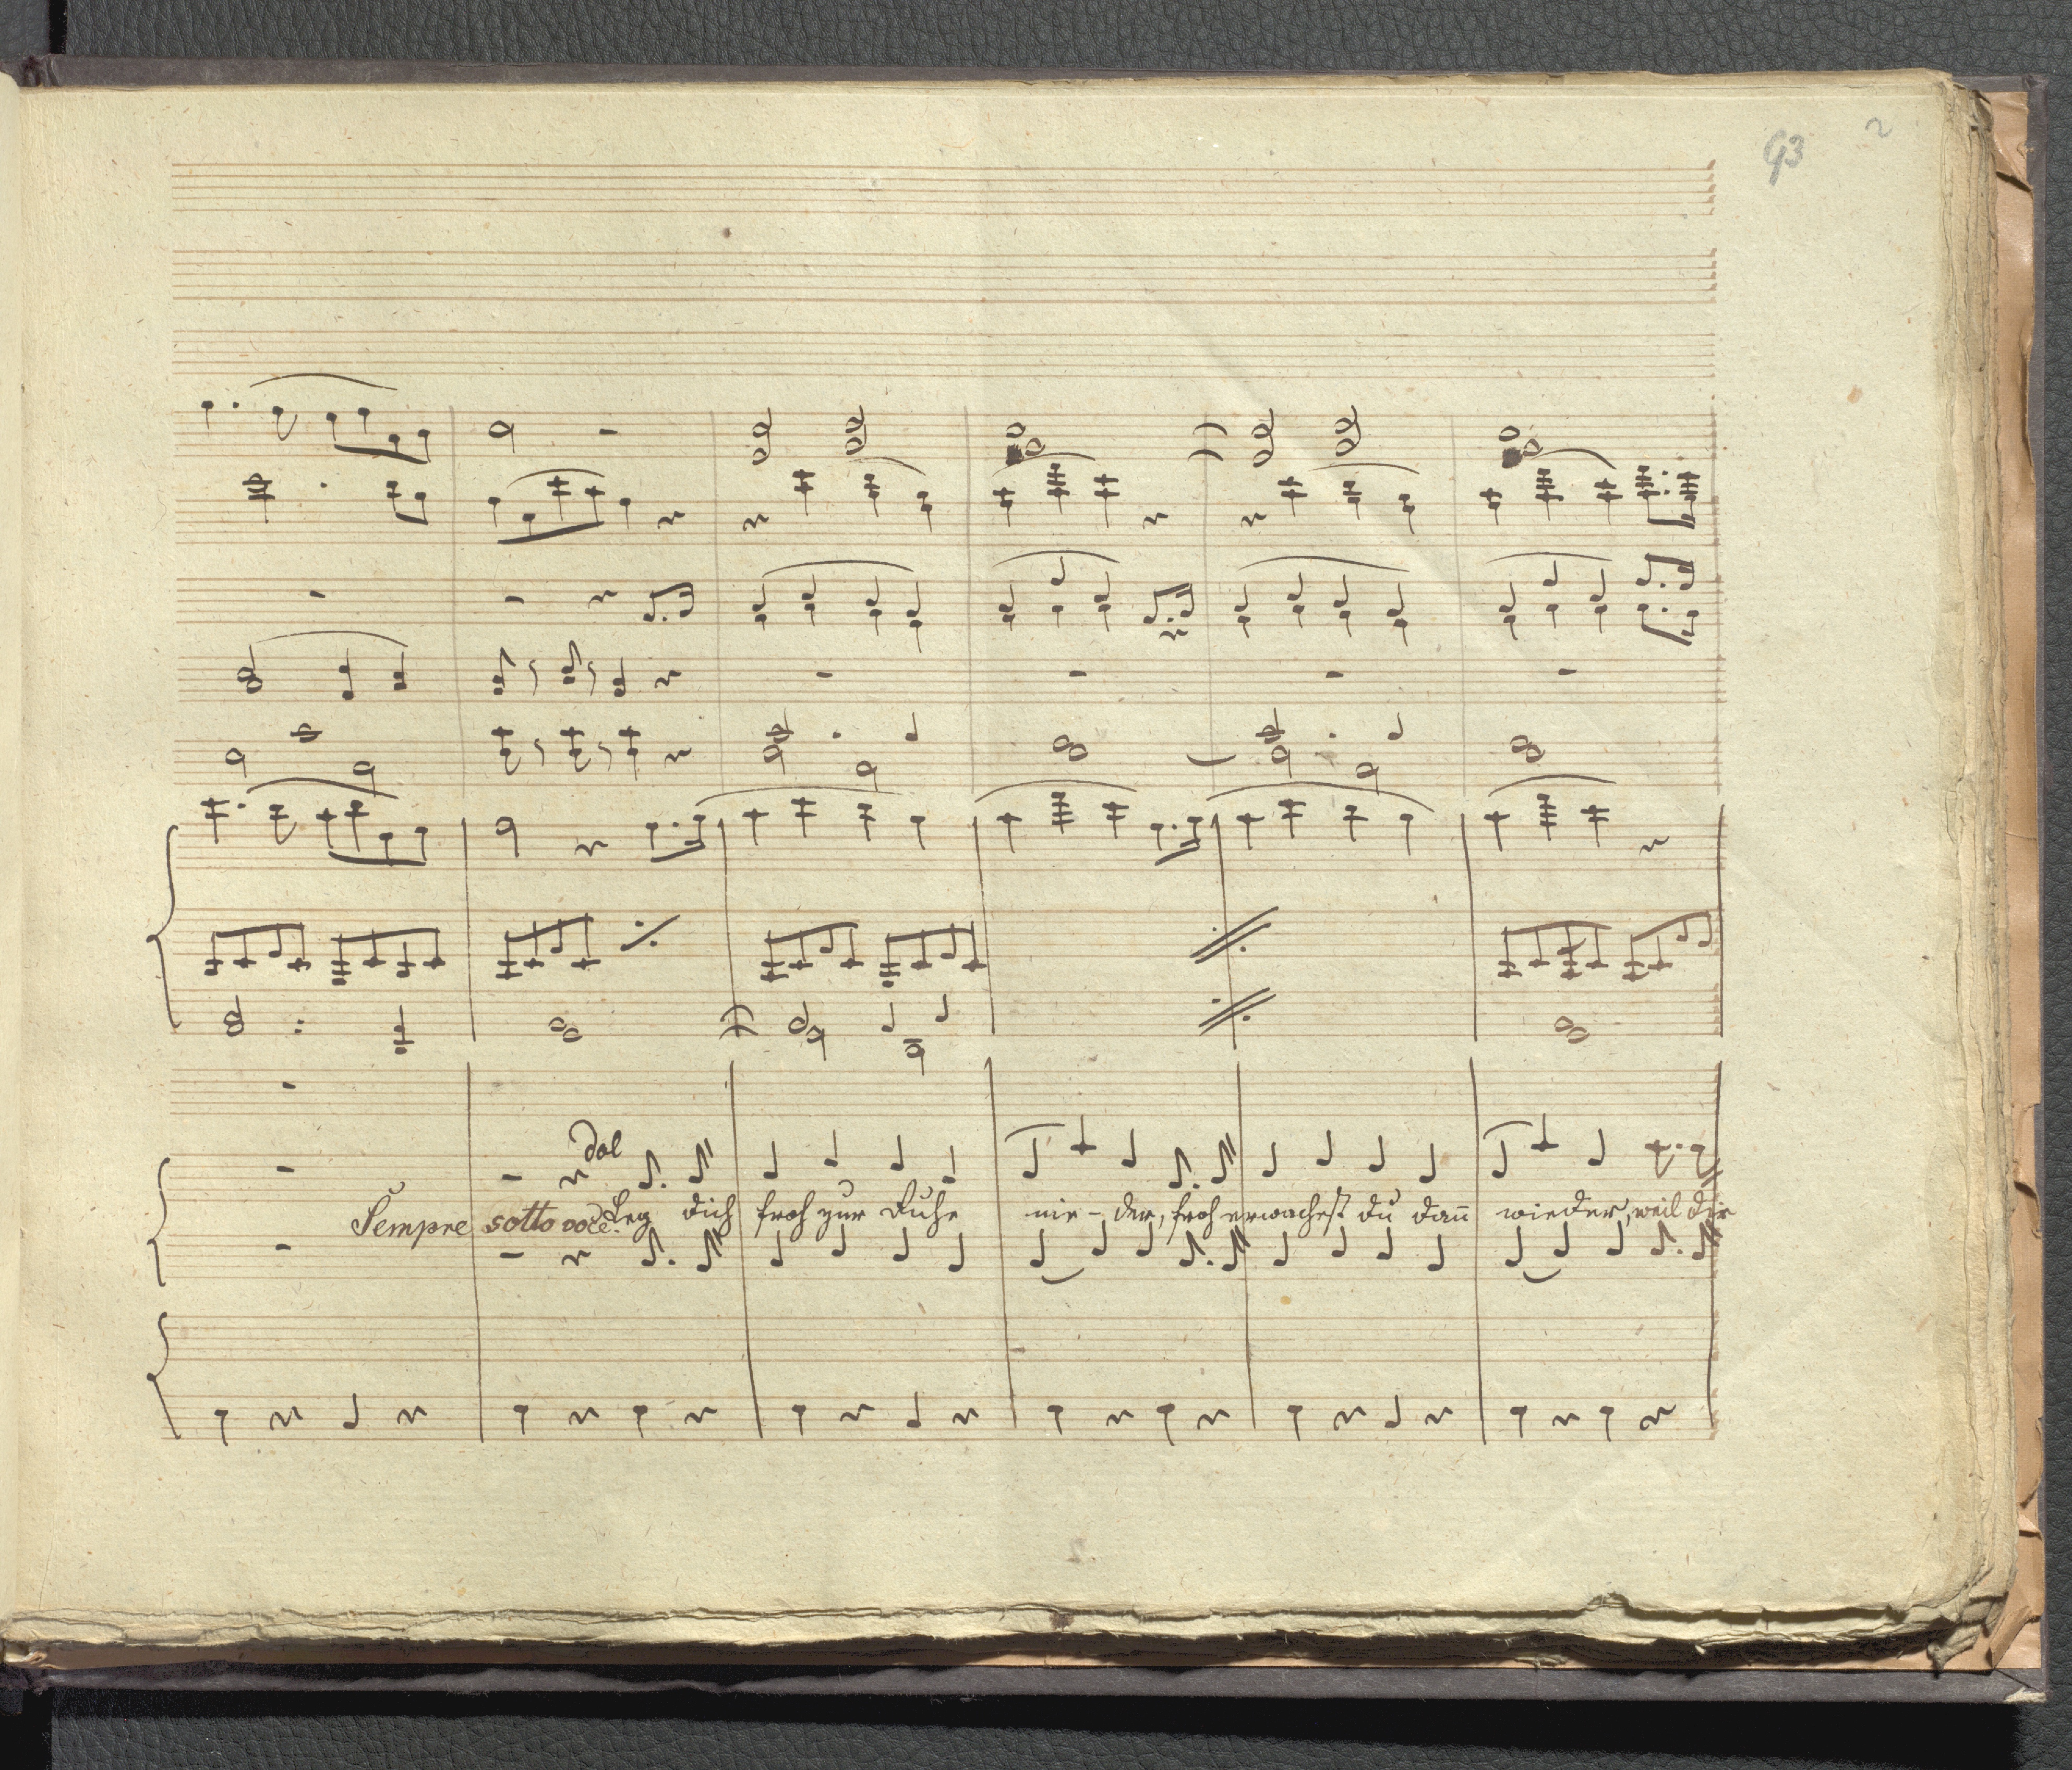 93 2
dol
Sempre sotto voce. Leg dich froh zur Ruhe nie - der, froh erwachest du dañ wieder, weil dir